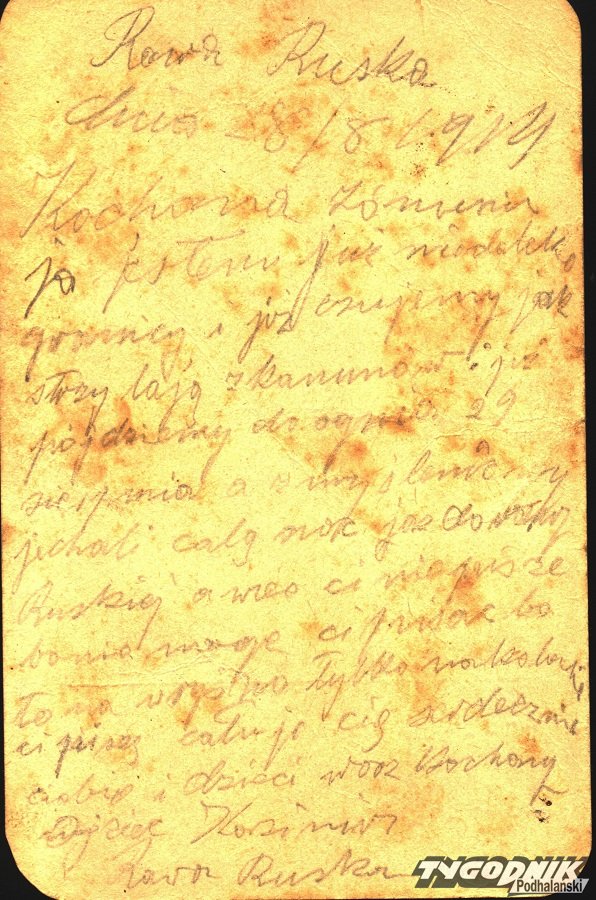 Rawa Ruska
dnia 28/8/1914
Kochana żóniu
ja jestem już niedaleko
granicy i już czujemy jak
strzylają zkanunów i już
pójdziemy do ognia 29
sierpnia a z myślenic my
jechali całą noc jaz do rawy
Ruskiej a wiec ci niepisze
bo niamoge ci pisac bo
to na tylko na kolanie
ci pisze całuje cię serdecznie
ciebie i dzieci wasz kochany
Ojciec Kazimirz
Rawa Ruska
TYGODNIK
Podhalański